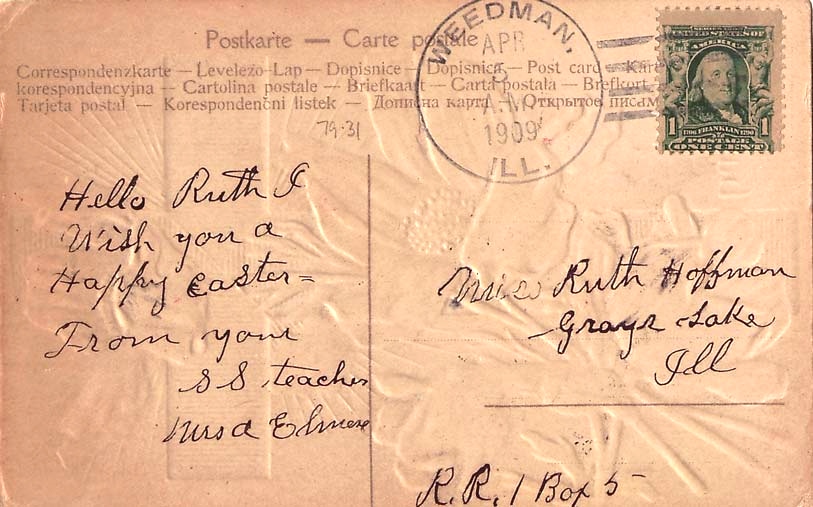 Postkarte — Carte postale
Correspondenzkarte — Levelezo-Lap — Dopisnice — Dopisnica — Post card — Kare
korespondencyjna — Cartolina postale — Briefkaart — Carta postala — Brefkort
Tarjeta postal — Korespondenčni listek — Дописна карта — Открытое письм
79-31
WEEDMAN,
APR
A.M
1909
ILL.
SERIES 1902
UNITED STATES OF
AMERICA
1706 FRANKLIN 1790
1 POSTAGE 1
ONE CENT
Hello Ruth I
Wish you a
Happy Easter =
From your
SS teacher
Mrs
Miss Ruth Hoffman
Grays Lake
Ill
R.R. 1 Box 5